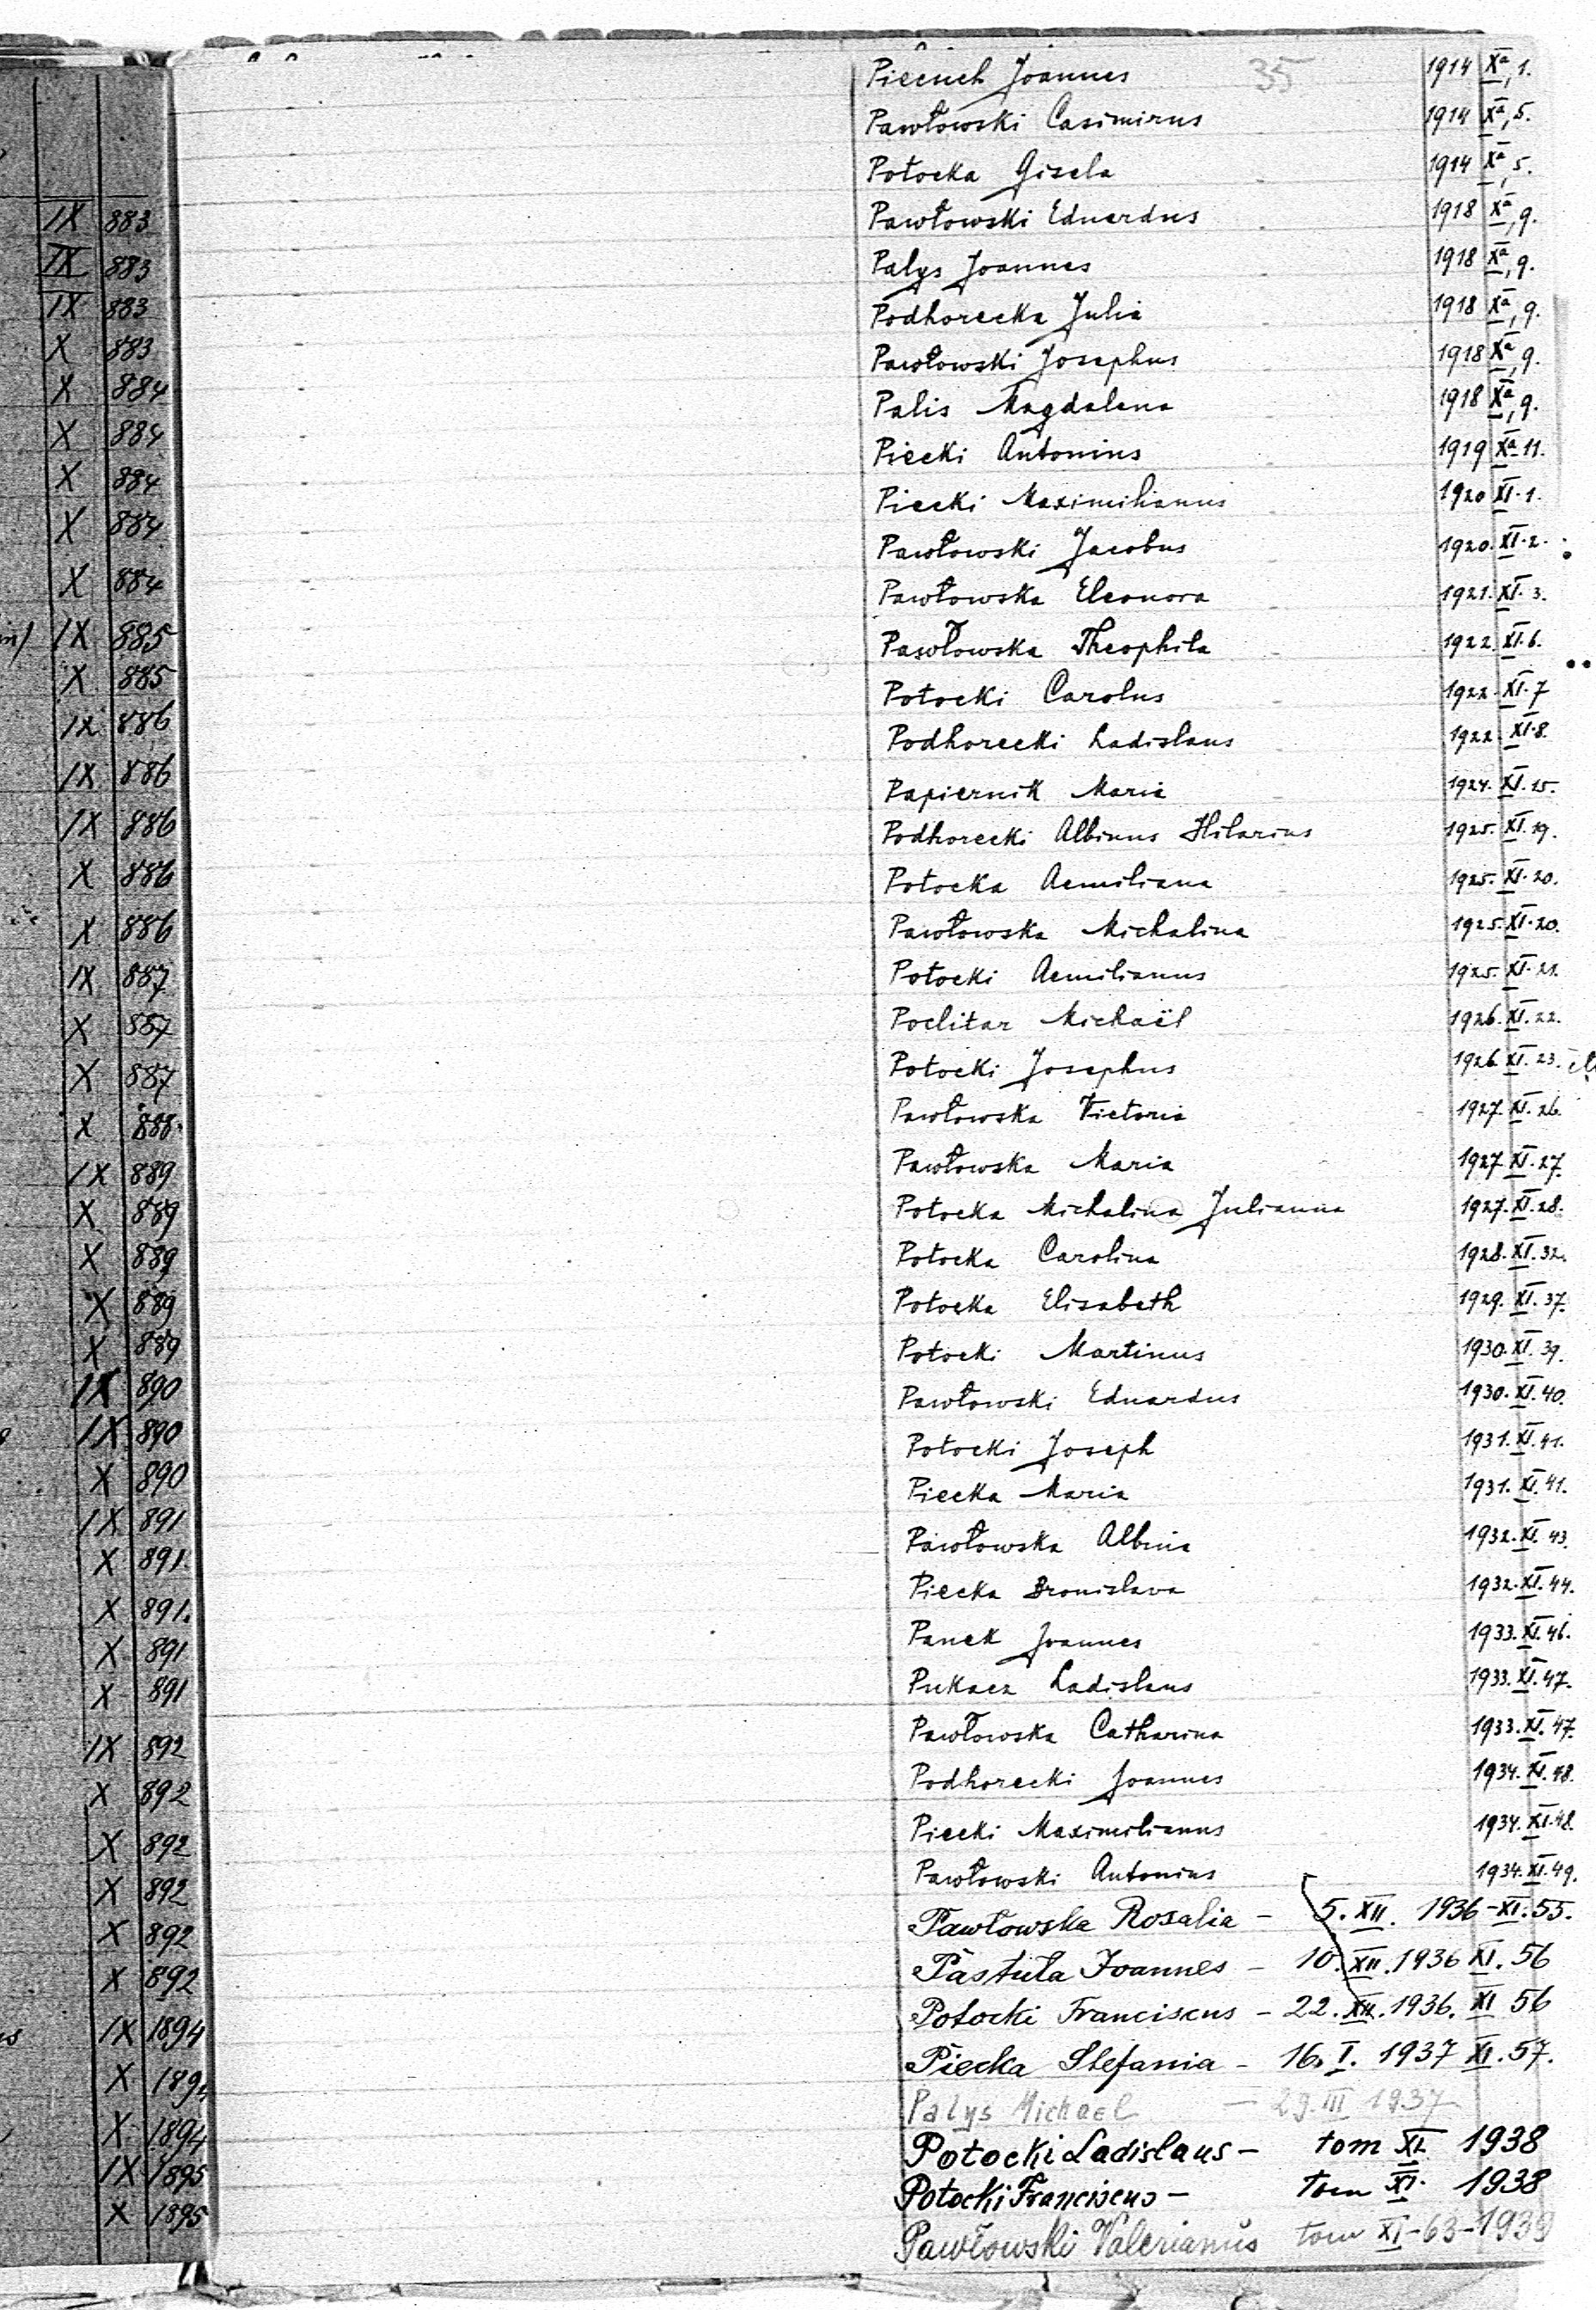 35
Piecuch Joannes 1914 Xa, 1.
Pawłowski Casimirus 1914 Xa, 5.
Potocka Gisela 1914 Xa, 5.
Pawłowski Eduardus 1918 Xa, 9.
Palys Joannes 1918 Xa, 9.
Podhorecka Julia 1918 Xa, 9.
Pawłowski Josephus 1918 Xa, 9.
Palis Magdalena 1918 Xa, 9.
Piecki Antonius 1919 Xa 11.
Piecki Maximilianus 1920 XI. 1.
Pawłowski Jacobus 1920. XI. 2.
Pawłowska Eleonora 1921. XI. 3.
Pawłowska Theophila 1922. XI. 6.
Potocki Carolus 1922. XI. 7
Podhorecki Ladislaus 1922 XI. 8.
Papiernik Maria 1924. XI. 15.
Podhorecki Albinus Hilarius 1925. XI. 19.
Potocka Aemiliana 1925. XI. 20.
Pawłowska Michalina 1925. XI. 20.
Potocki Aemilianus 1925. XI. 21.
Poclitar Michaël 1926. XI. 22.
Potocki Josephus 1926 XI. 23.
Pawłowska Victoria 1927 XI. 26.
Pawłowska Maria 1927 XI. 27.
Potocka Michalina Julianna 1927. XI. 28.
Potocka Carolina 1928. XI. 32.
Potocka Elisabeth 1929. XI. 37.
Potocki Martinus 1930. XI. 39.
Pawłowski Eduardus 1930. XI. 40.
Potocki Joseph 1931. XI. 41.
Piecka Maria 1931. XI. 41.
Pawłowska Albina 1932. XI. 43.
Piecka Bronislava 1932. XI. 44.
Panek Joannes 1933. XI. 46.
Pukacz Ladislaus 1933. XI. 47.
Pawłowska Catharina 1933. XI. 47.
Podhorecki Joannes 1934. XI. 48.
Piecki Maximilianus 1934. XI. 48.
Pawłowski Antonius 1934. XI. 49.
Pawłowska Rosalia - 5. XII. 1936 - XI. 55.
Pastuła Joannes - 10. XII. 1936 XI. 56
Potocki Franciscus - 22. XII. 1936. XI 56
Piecka Stefania - 16. I. 1937 XI. 57.
Palys Michael - 29. III 1937
Potocki Ladislaus - tom XI. 1938
Potocki Franciscus - tom XI. 1938
Pawłowski Valerianus tom XI - 63 - 1939
IX 883
IX 883
IX 883
X 883
X 884
X 884
X 884
X 884
X 884
IX 885
X 885
IX 886
IX 886
IX 886
X 886
X 886
IX 887
X 887
X 887
X 888
IX 889
X 889
X 889
X 889
X 889
IX 890
IX 890
X 890
IX 891
X 891
X 891.
X 891
X 891
IX 892
X 892
X 892
X 892
X 892
X 892
IX 1894
X 1894
X 1894
IX 1895
X 1895